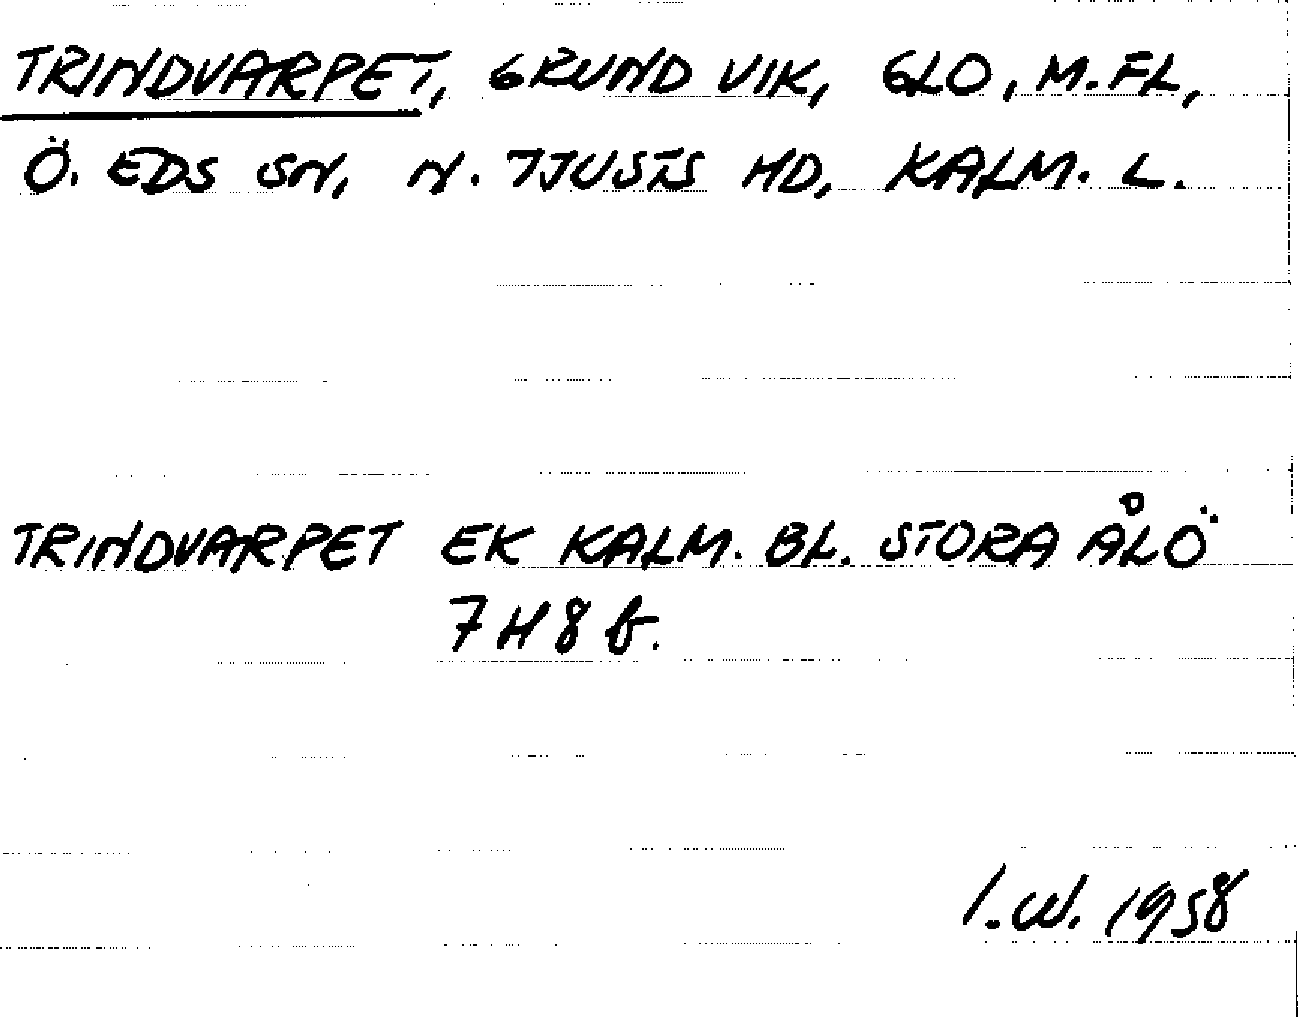 TRINDVARPET, GRUND VIK, GLO, M.FL,
Ö. EDS SN, N. TJUSTS HD, KALM. L.
TRINDVARPET EK KALM. BL. STORA ÅLÖ
7H8b.
I.W. 1958